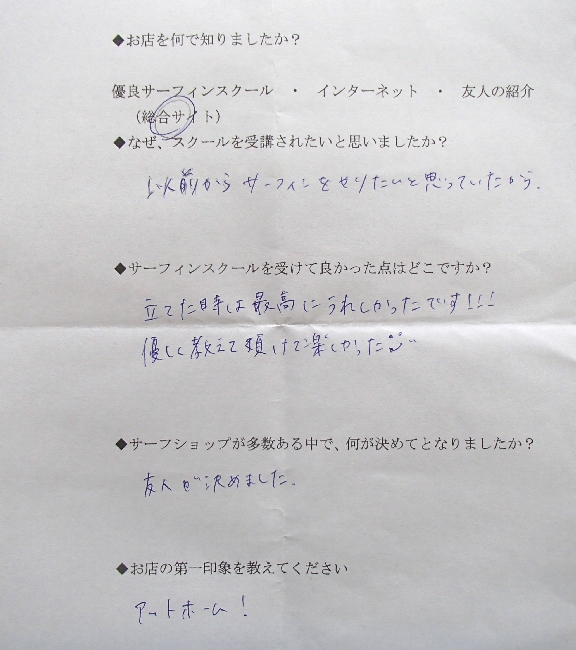 ◆お店を何で知りましたか？
優良サーフィンスクール ・ インターネット ・ 友人の紹介
（総合サイト）
◆なぜ、スクールを受講されたいと思いましたか？
以前からサーフィンをやりたいと思っていたから。
◆サーフィンスクールを受けて良かった点はどこですか？
立てた時は最高にうれしかったです!!!
優しく教えて頂けて楽しかった
◆サーフショップが多数ある中で、何が決めてとなりましたか？
友人が決めました。
◆お店の第一印象を教えてください
アットホーム！